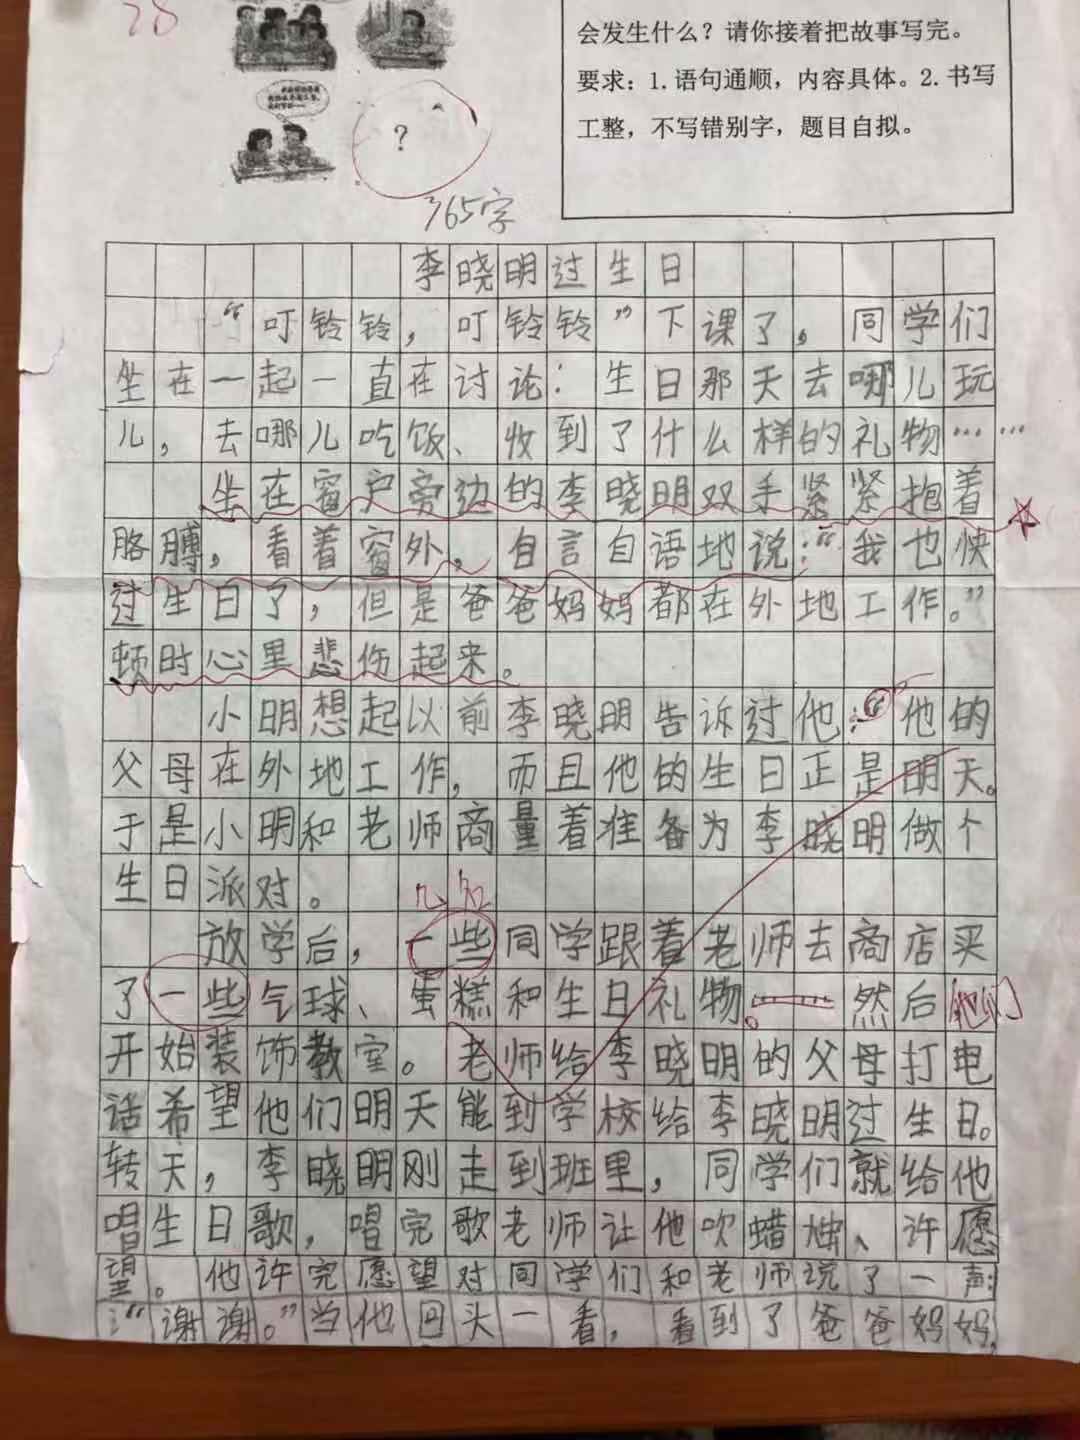 28
会发生什么？请你接着把故事写完。
要求：1.语句通顺，内容具体。2.书写
工整，不写错别字，题目自拟。
？
365字
李晓明过生日
“叮铃铃，叮铃铃”下课了，同学们
坐在一起一直在讨论：生日那天去哪儿玩
儿，去哪儿吃饭、收到了什么样的礼物……
坐在窗户旁边的李晓明双手紧紧抱着
胳膊，看着窗外，自言自语地说：“我也快
过生日了，但是爸爸妈妈都在外地工作。”
顿时心里悲伤起来。
小明想起以前李晓明告诉过他：“他的
父母在外地工作，而且他的生日正是明天。
于是小明和老师商量着准备为李晓明做个
生日派对。
几名
放学后，一些同学跟着老师去商店买
了一些气球、蛋糕和生日礼物。然后他们
开始装饰教室。老师给李晓明的父母打电
话希望他们明天能到学校给李晓明过生日。
转天，李晓明刚走到班里，同学们就给他
唱生日歌，唱完歌老师让他吹蜡烛、许愿
望。他许完愿望对同学们和老师说了一声：
“谢谢。”当他回头一看，看到了爸爸妈妈，